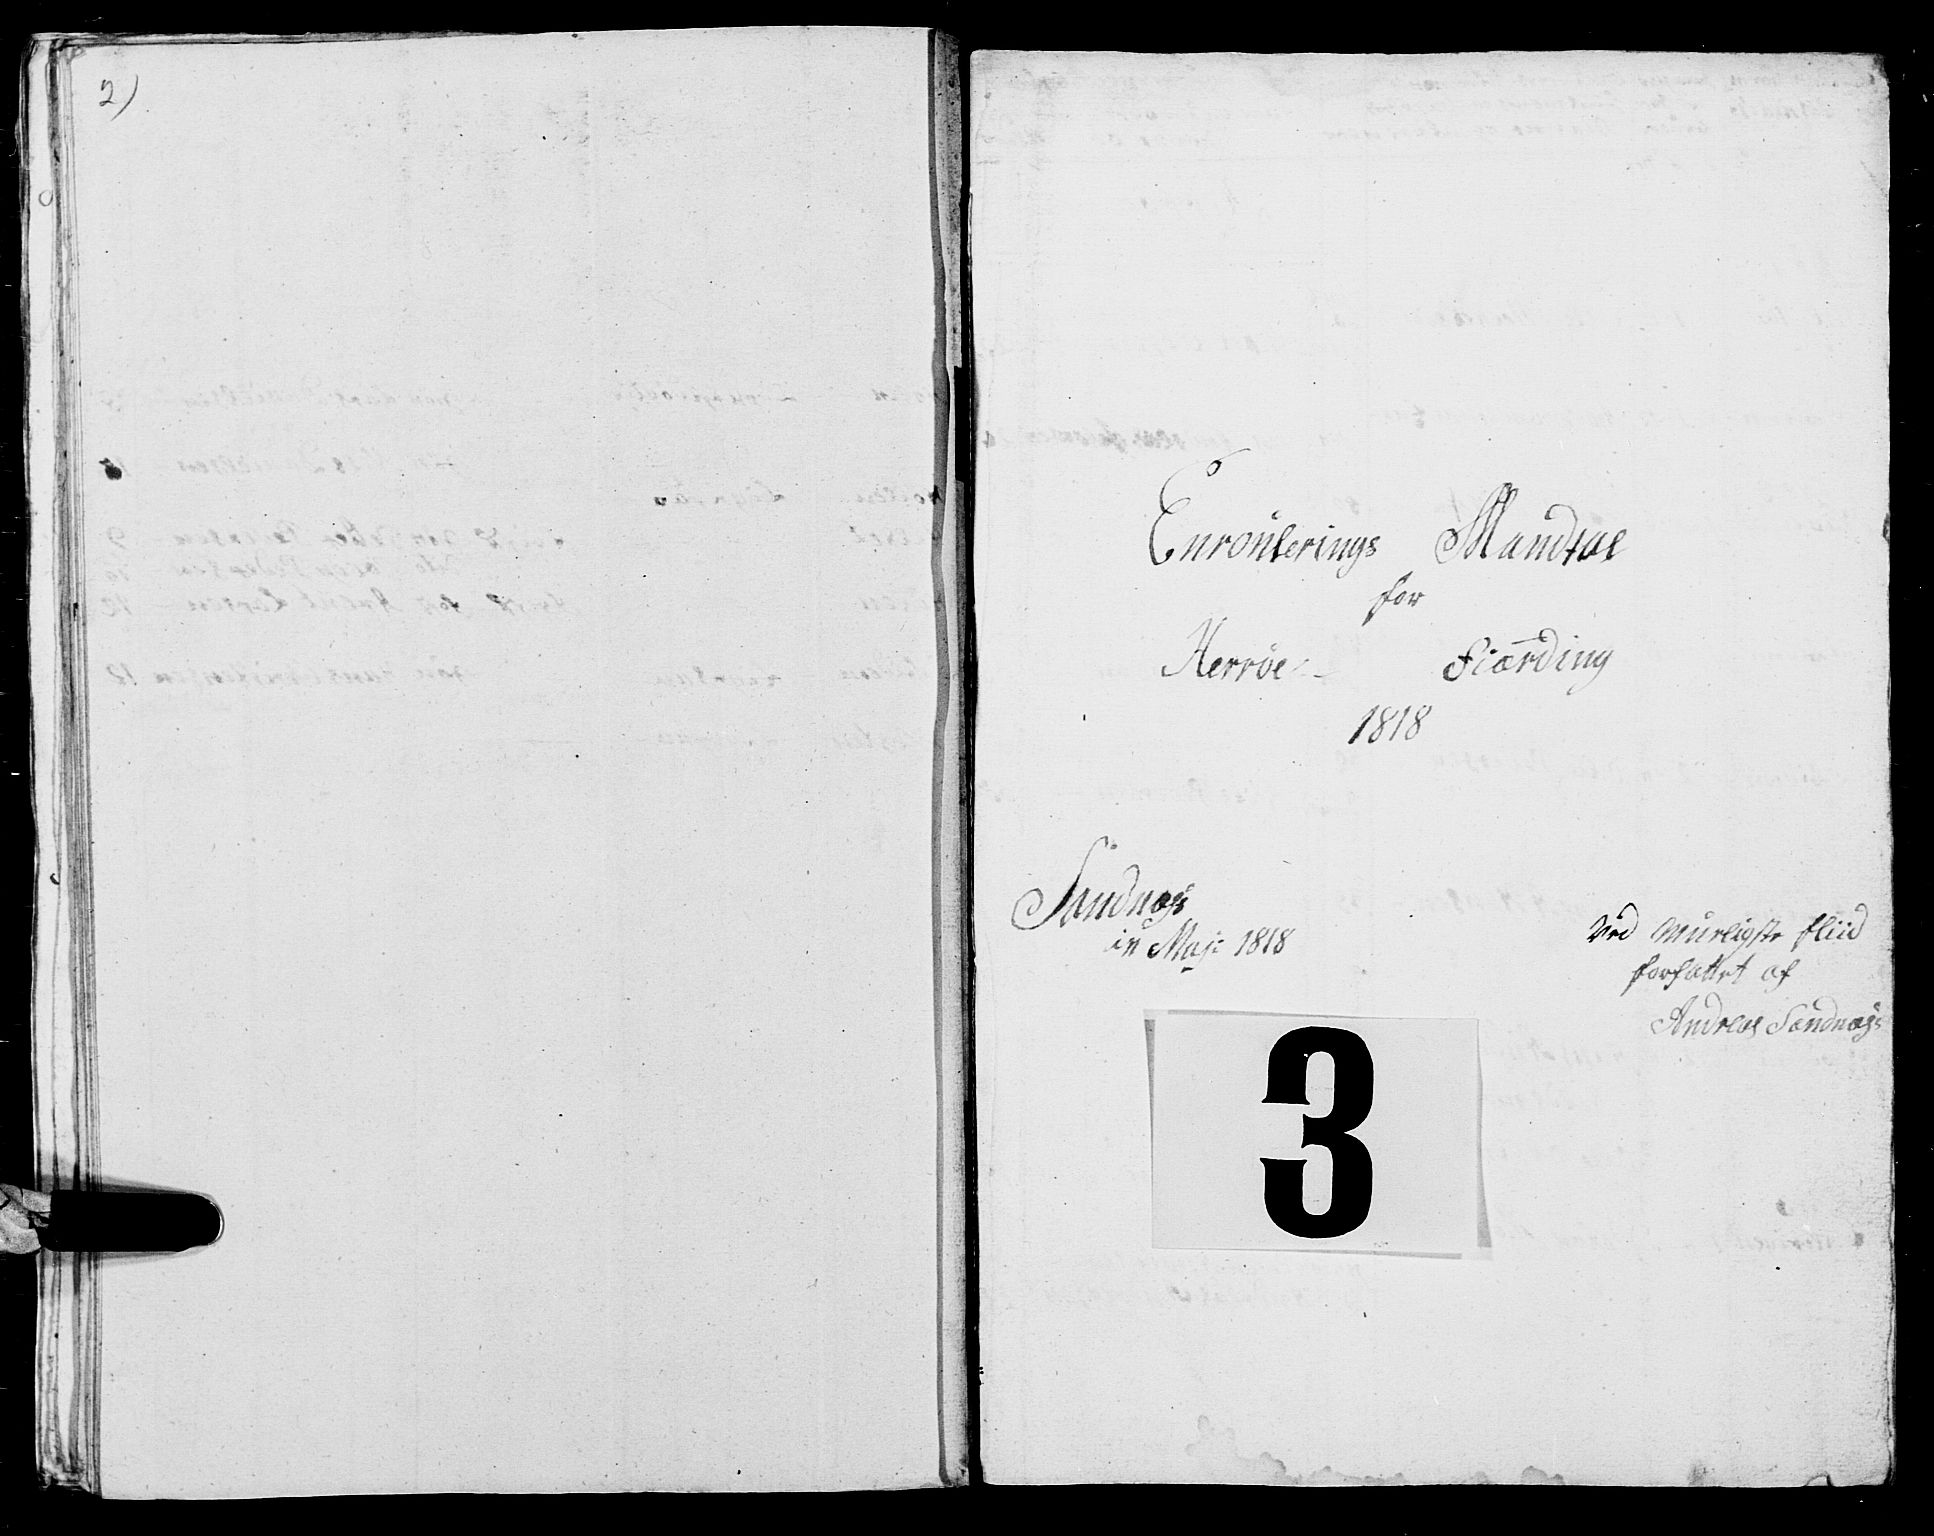 2)
Enroulerings Mandtal
for
Herrøe Fiærding
1818
Sandnæs
in Maji 1818
Ved Mueligste Fliid
forfattet af
Andreas Sandnæs
3